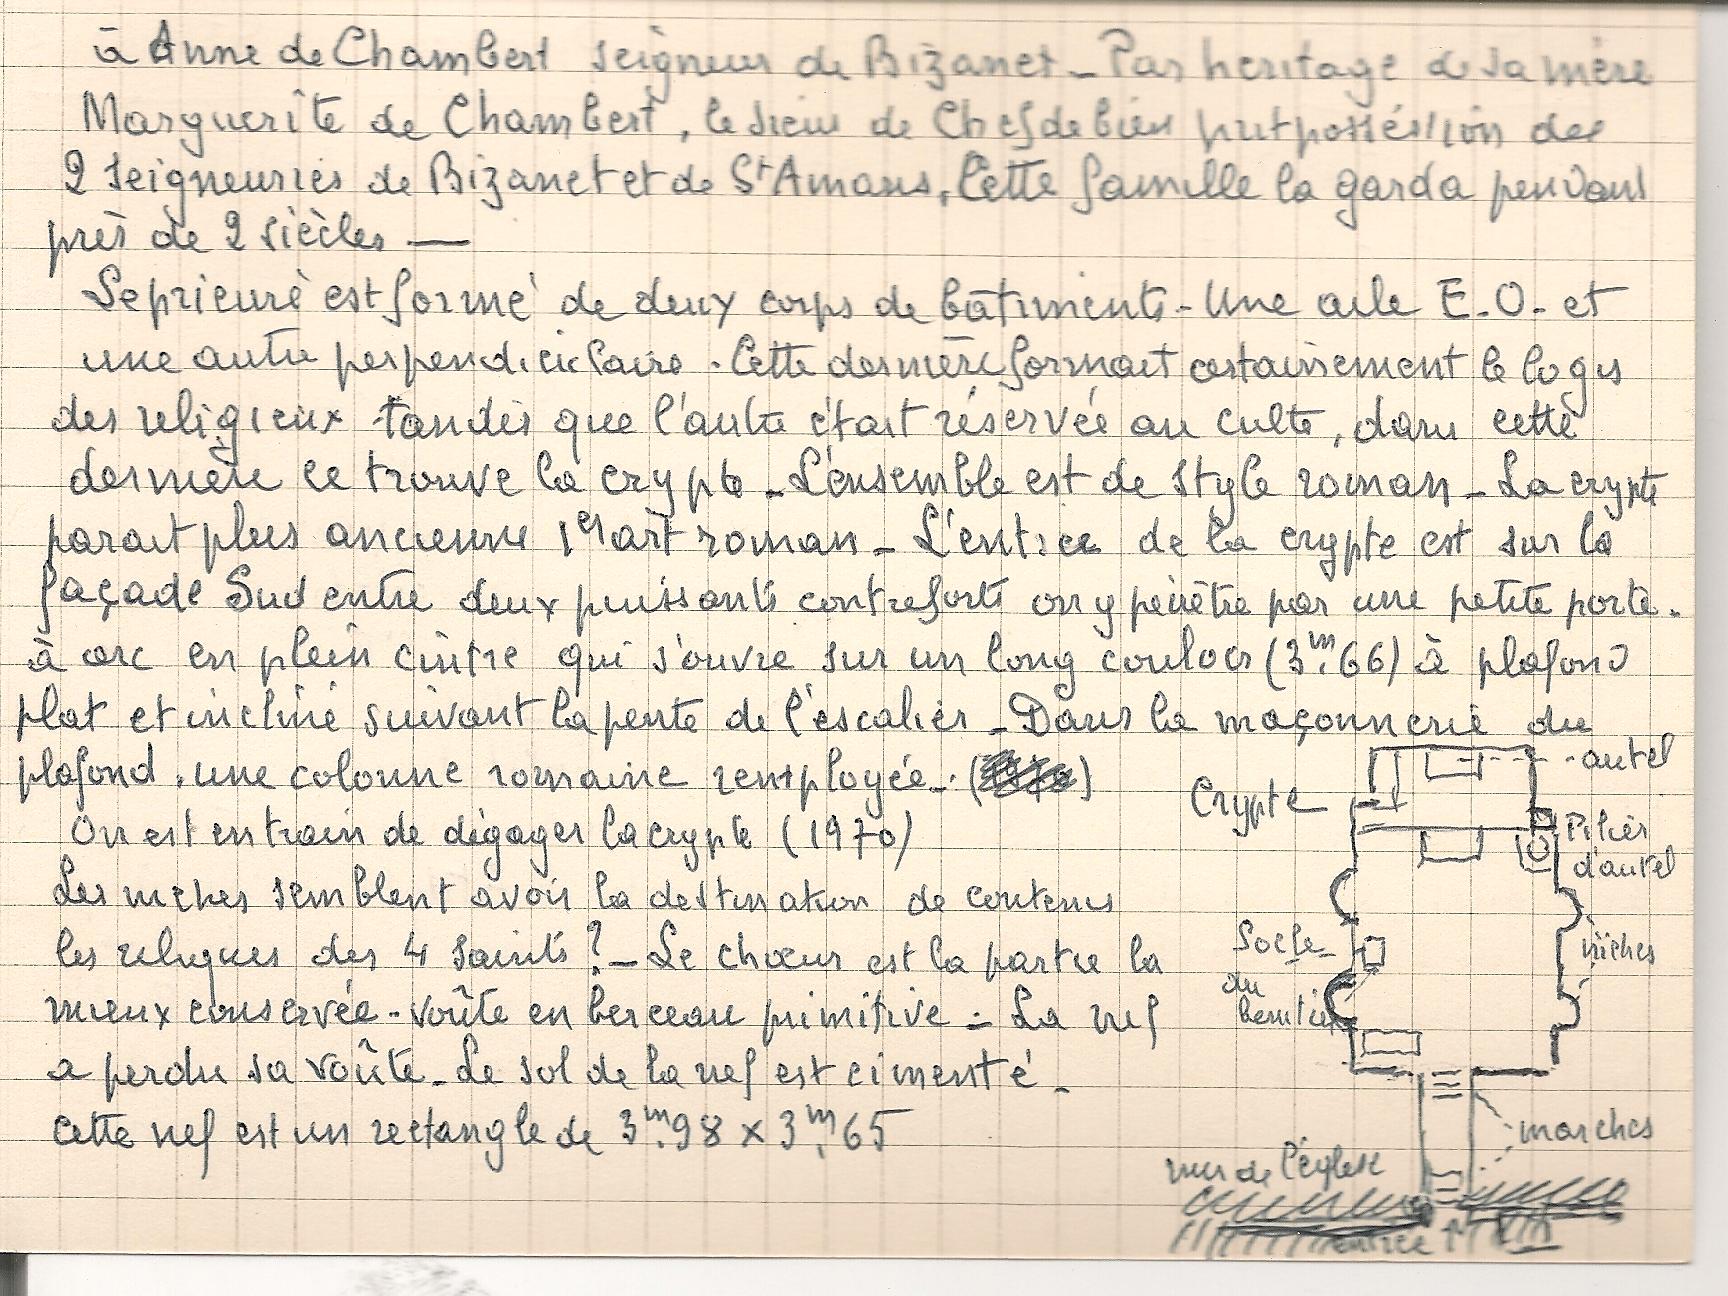 à Anne de Chambert seigneur de Bizanet - Par heritage de sa mère
Marguerite de Chambert, le sieur de Chefdebien prit possession des
2 seigneuries de Bizanet et de St Amans. Cette famille la garda pendant
près de 2 siècles —
Le prieuré est formé de deux corps de bâtiments - Une aile E.O. et
une autre perpendiculaire. Cette dernière formait certainement le logis
des religieux tandis que l'autre était réservée au culte, dans cette
dernière se trouve la crypte - L'ensemble est de style roman - La crypte
parait plus ancienne 1er art roman - L'entrée de la crypte est sur la
façade Sud entre deux puissants contreforts on y pénètre par une petite porte
à arc en plein cintre qui s'ouvre sur un long couloir (3m.66) à plafond
plat et incliné suivant la pente de l'escalier - Dans la maçonnerie du
plafond, une colonne romaine remployée. ( )
On est en train de dégager la crypte (1970)
Les niches semblent avoir la destination de contenir
les reliques des 4 saints ? - Le chœur est la partie la
mieux conservée - voûte en berceau primitive - La nef
a perdu sa voûte - Le sol de la nef est cimenté -
Cette nef est un rectangle de 3m.98 x 3m.65
autel
Crypte
Pilier
d'autel
Socle
du
benitier
niches
marches
mur de l'église
entrée